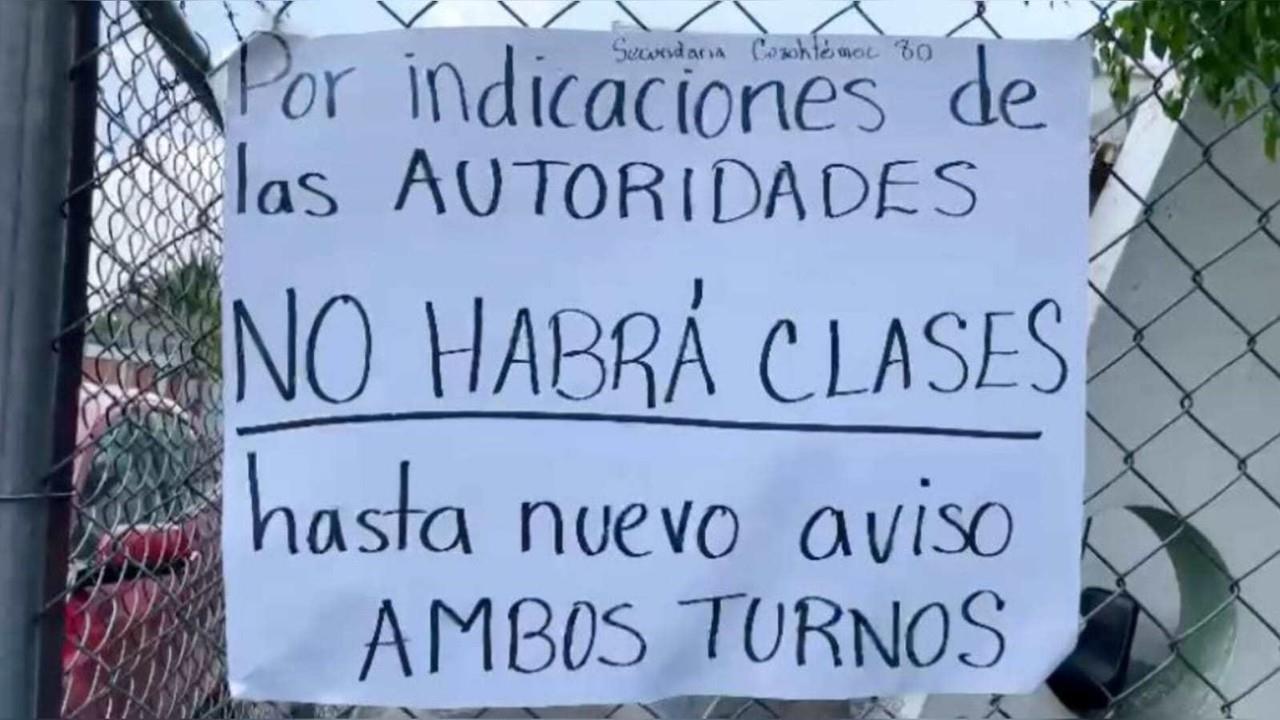 Secundaria Cuauhtémoc 80
Por indicaciones de
las AUTORIDADES
NO HABRÁ CLASES
hasta nuevo aviso
AMBOS TURNOS